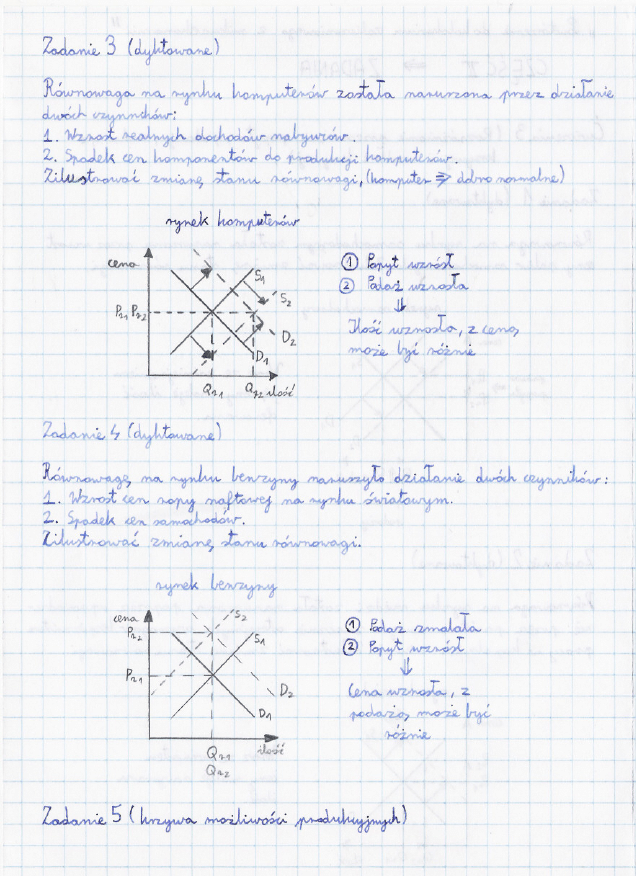 Zadanie 3 (dyktowane)
Równowaga na rynku komputerów została naruszona przez działanie
dwóch czynników:
1. Wzrost realnych dochodów nabywców.
2. Spadek cen komponentów do produkcji komputerów.
Zilustrować zmianę stanu równowagi, (komputer ⇒ dobro normalne)
rynek komputerów
cena
S1
S2
Pr1 Pr2
D2
D1
Qr1 Qr2 ilość
① Popyt wzrósł
② Podaż wzrosła
⇓
Ilość wzrosła, z ceną
może być różnie
Zadanie 4 (dyktowane)
Równowagę na rynku benzyny naruszyło działanie dwóch czynników:
1. Wzrost cen ropy naftowej na rynku światowym.
2. Spadek cen samochodów.
Zilustrować zmianę stanu równowagi.
rynek benzyny
cena
S2
Pr2
S1
Pr1
D2
D1
Qr1 ilość
Qr2
① Podaż zmalała
② Popyt wzrósł
⇓
Cena wzrosła, z
podażą może być
różnie
Zadanie 5 (krzywa możliwości produkcyjnych)